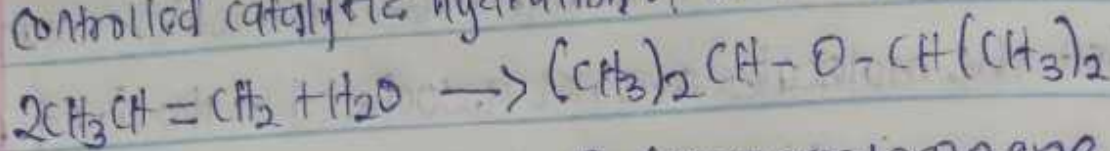 controlled catalytic
2CH₃CH = CH₂ + H₂O ⟶ (CH₃)₂ CH - O - CH(CH₃)₂